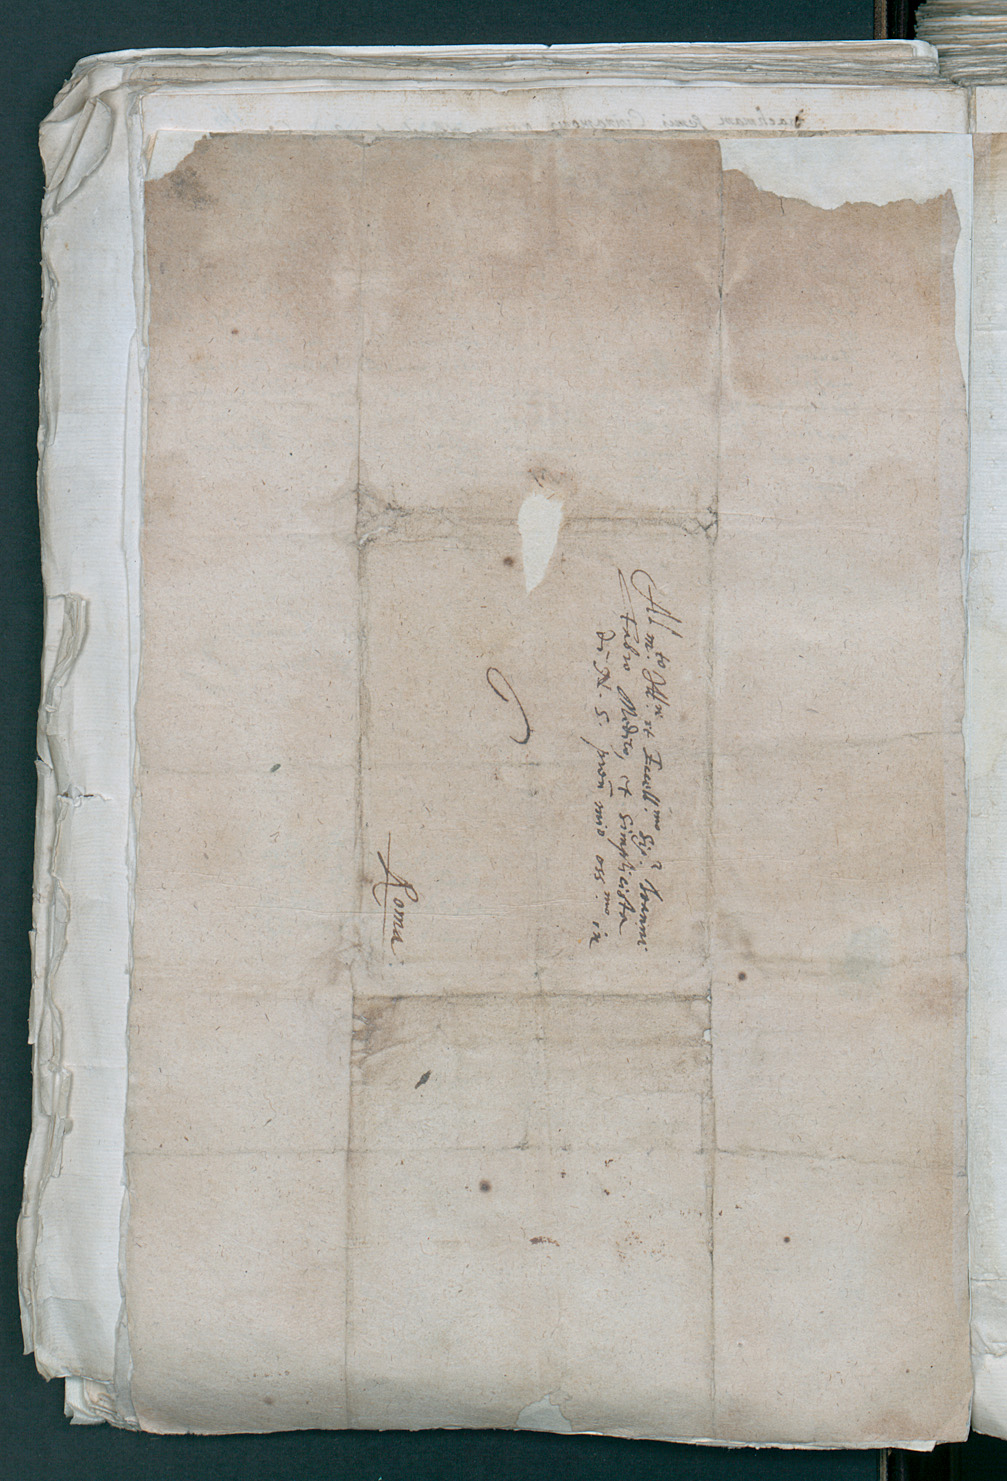 Al m.to Ill.re et Eccell.mo Sig.r Ioanni
Fabro Medico, et Simplicista
di N. S. pron mio oss.mo in
Roma.